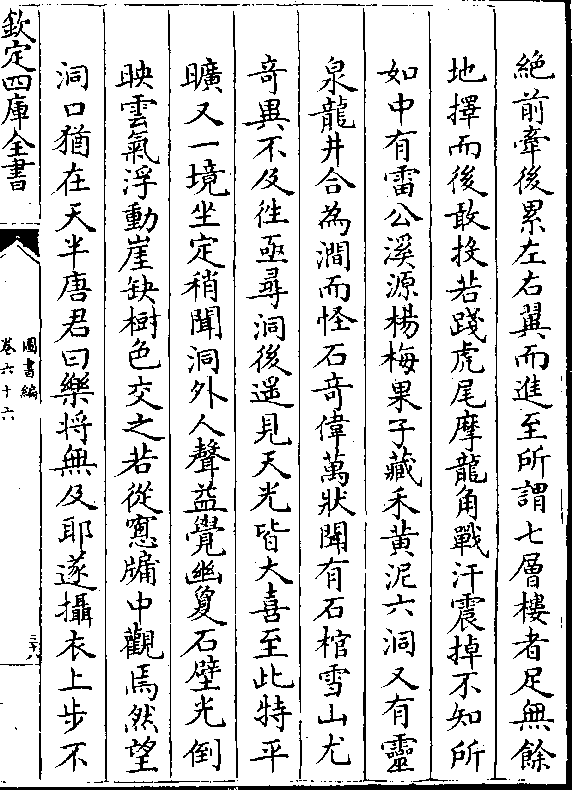 絶前牽後累左右翼而進至所謂七層樓者足無餘
地擇而後敢投若踐虎尾摩龍角戰汗震掉不知所
如中有雷公溪源楊梅果子藏禾黄泥六洞又有靈
泉龍井合為澗而怪石竒偉萬狀聞有石棺雪山尤
竒異不及徃亟尋洞後遥見天光皆大喜至此特平
曠又一境坐定稍聞洞外人聲益覺幽夐石壁光倒
映雲氣浮動崖缺樹色交之若從窓牖中觀焉然望
洞口猶在天半唐君曰樂將無及耶遂攝衣上步不
欽定四庫全書
圖書編
卷六十六